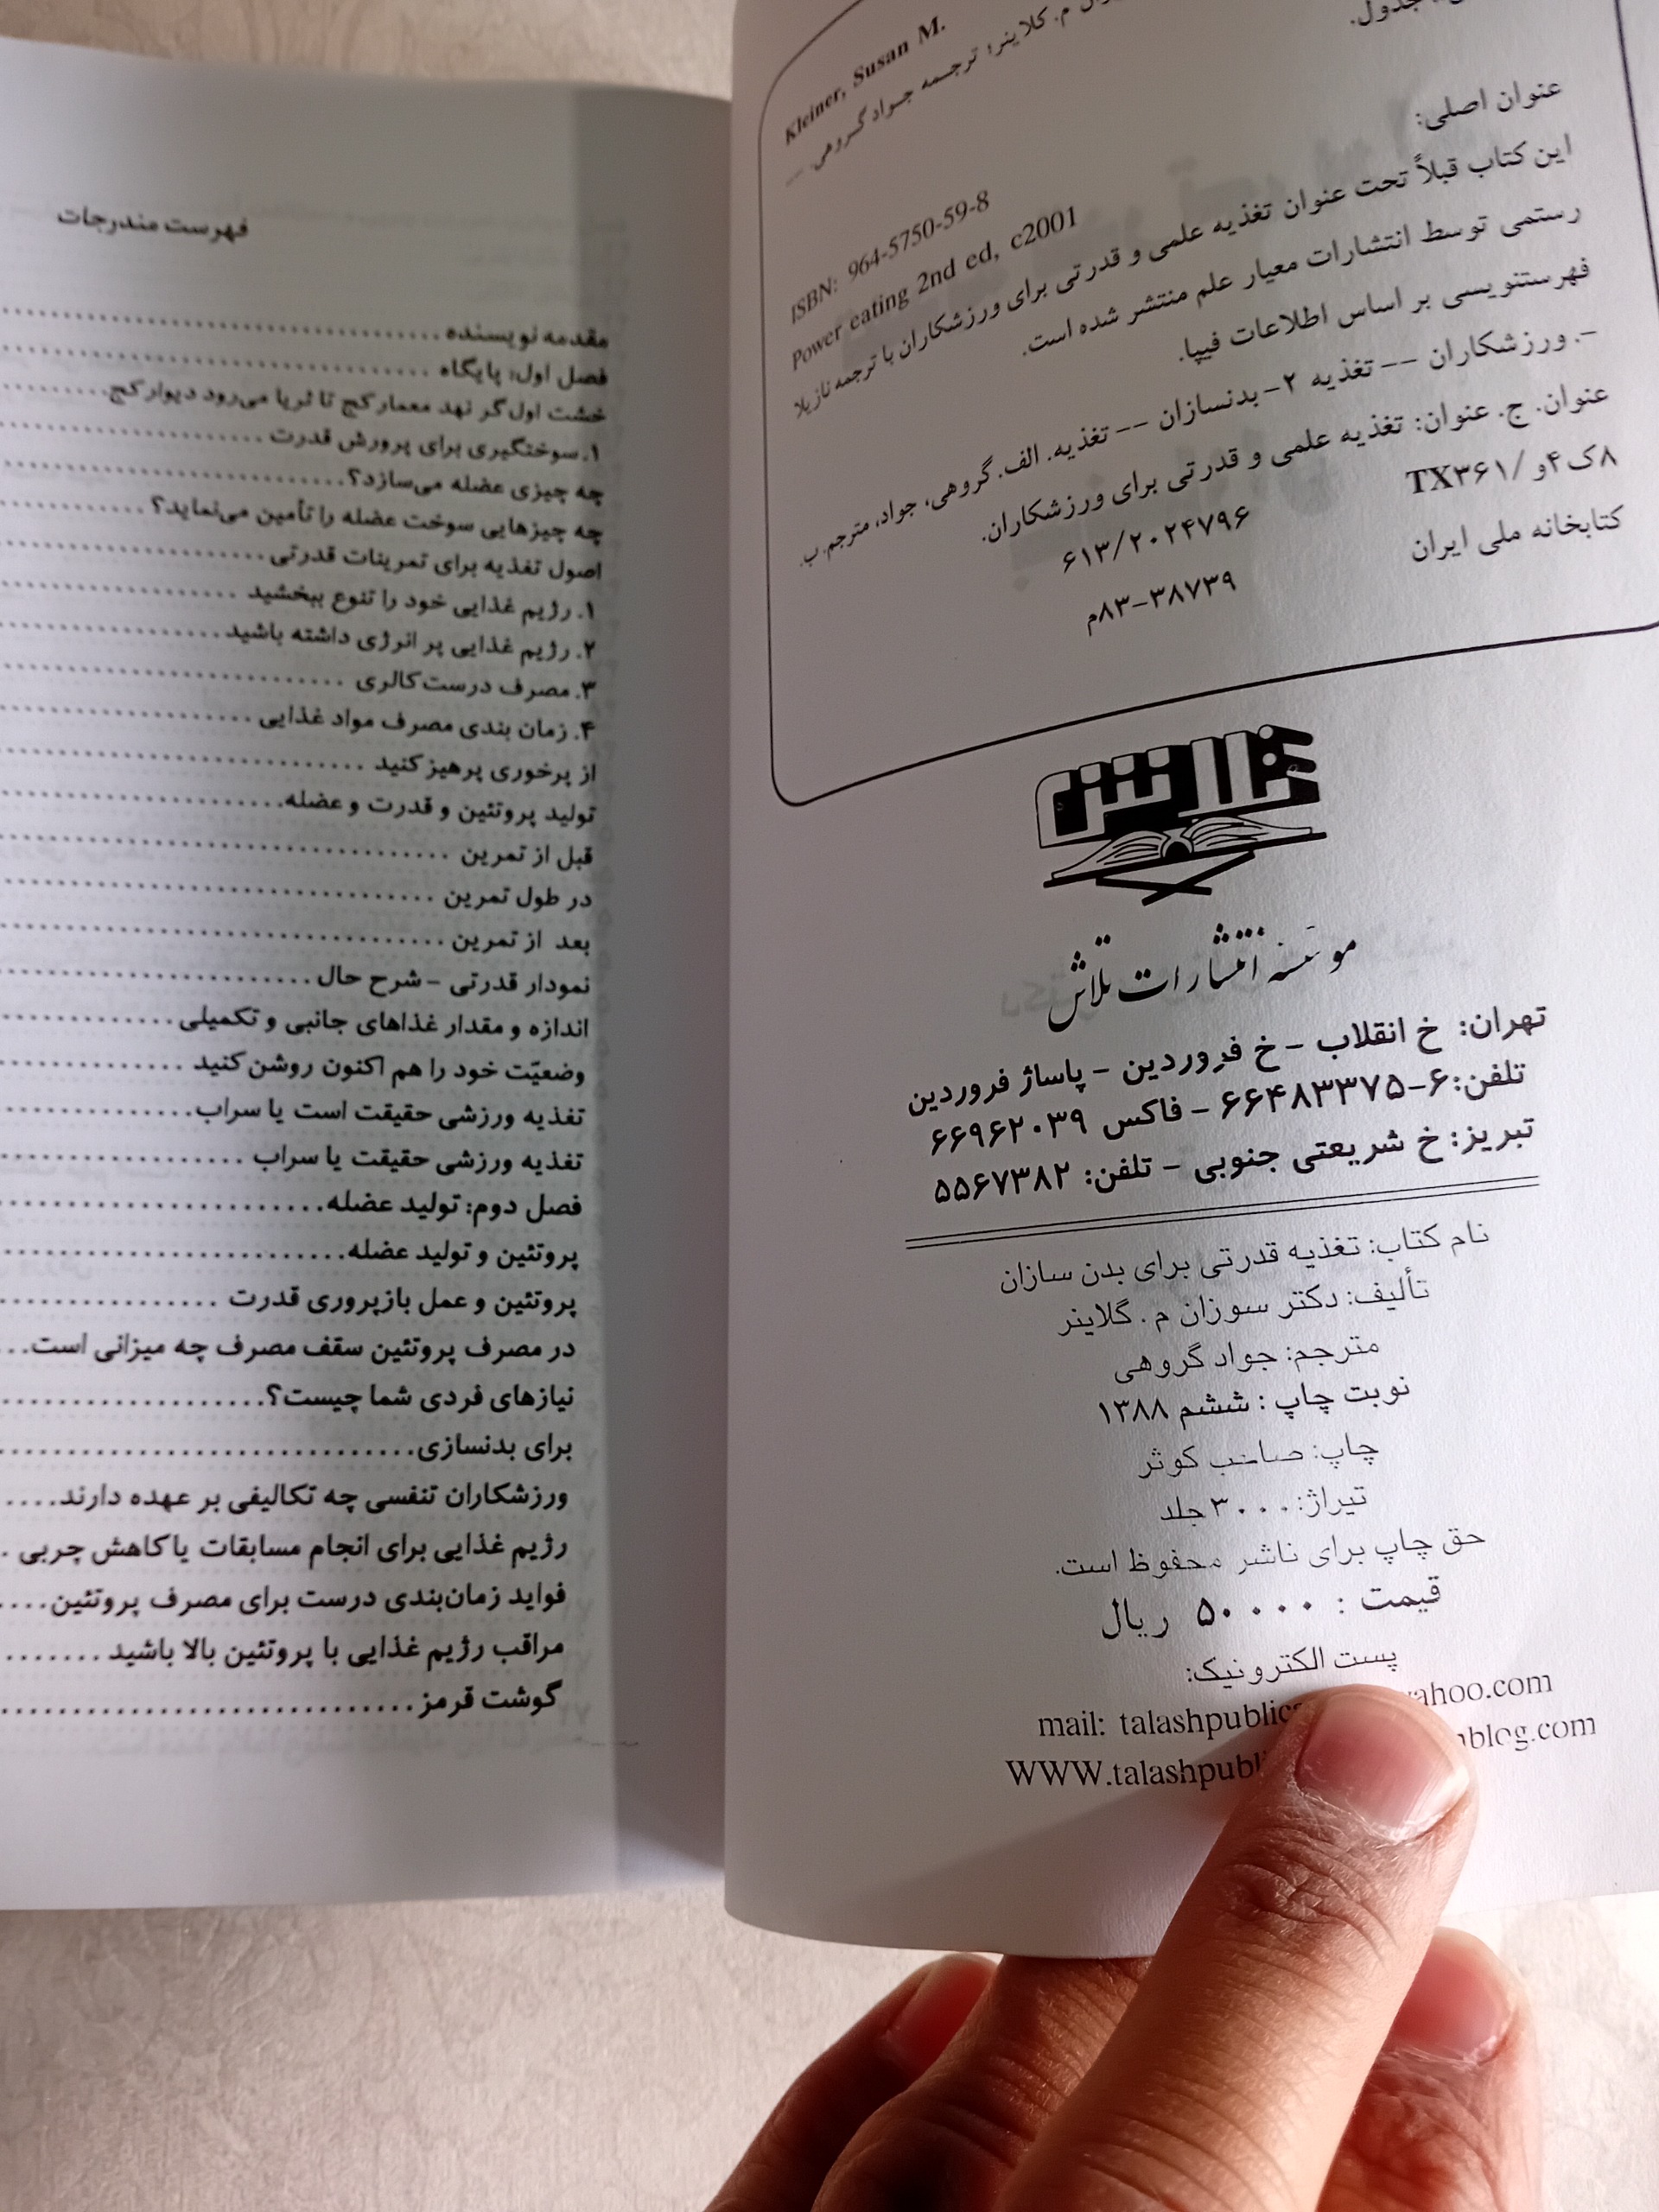 جدول.
Kleiner, Susan M.
م. کلاینر؛ ترجمه جواد گروهی. --
عنوان اصلی:
ISBN: 964-5750-59-8
Power eating 2nd ed, c2001
این کتاب قبلاً تحت عنوان تغذیه علمی و قدرتی برای ورزشکاران با ترجمه نازیلا
رستمی توسط انتشارات معیار علم منتشر شده است.
فهرستنویسی بر اساس اطلاعات فیپا.
-. ورزشکاران -- تغذیه ۲- بدنسازان -- تغذیه. الف. گروهی، جواد، مترجم. ب.
عنوان. ج. عنوان: تغذیه علمی و قدرتی برای ورزشکاران.
۸ک۴و /TX۳۶۱
۶۱۳/۲۰۲۴۷۹۶
کتابخانه ملی ایران
۸۳-۳۸۷۳۹م
تلاش
موسسه انتشارات تلاش
تهران: خ انقلاب - خ فروردین - پاساژ فروردین
تلفن: ۶-۶۶۴۸۳۳۷۵ - فاکس ۶۶۹۶۲۰۳۹
تبریز: خ شریعتی جنوبی - تلفن: ۵۵۶۷۳۸۲
نام کتاب: تغذیه قدرتی برای بدن سازان
تألیف: دکتر سوزان م. گلاینر
مترجم: جواد گروهی
نوبت چاپ : ششم ۱۳۸۸
چاپ: صاحب کوثر
تیراژ: ۳۰۰۰ جلد
حق چاپ برای ناشر محفوظ است.
قیمت : ۵۰۰۰۰ ریال
پست الکترونیک:
mail: talashpublic yahoo.com
WWW.talashpubl blog.com
فهرست مندرجات
مقدمه نویسنده
فصل اول: پایگاه
خشت اول گر نهد معمار کج تا ثریا می‌رود دیوار کج
۱. سوختگیری برای پرورش قدرت
چه چیزی عضله می‌سازد؟
چه چیزهایی سوخت عضله را تأمین می‌نماید؟
اصول تغذیه برای تمرینات قدرتی
۱. رژیم غذایی خود را تنوع ببخشید
۲. رژیم غذایی پر انرژی داشته باشید
۳. مصرف درست کالری
۴. زمان بندی مصرف مواد غذایی
از پرخوری پرهیز کنید
تولید پروتئین و قدرت و عضله
قبل از تمرین
در طول تمرین
بعد از تمرین
نمودار قدرتی - شرح حال
اندازه و مقدار غذاهای جانبی و تکمیلی
وضعیّت خود را هم اکنون روشن کنید
تغذیه ورزشی حقیقت است یا سراب
تغذیه ورزشی حقیقت یا سراب
فصل دوم: تولید عضله
پروتئین و تولید عضله
پروتئین و عمل بازپروری قدرت
در مصرف پروتئین سقف مصرف چه میزانی است
نیازهای فردی شما چیست؟
برای بدنسازی
ورزشکاران تنفسی چه تکالیفی بر عهده دارند
رژیم غذایی برای انجام مسابقات یا کاهش چربی
فواید زمان‌بندی درست برای مصرف پروتئین
مراقب رژیم غذایی با پروتئین بالا باشید
گوشت قرمز